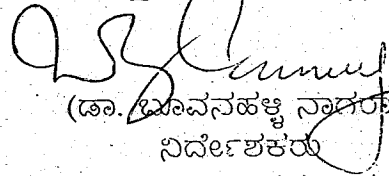 (ಡಾ. ಭೂವನಹಳ್ಳಿ ನಾಗರಾ
ನಿರ್ದೇಶಕರು